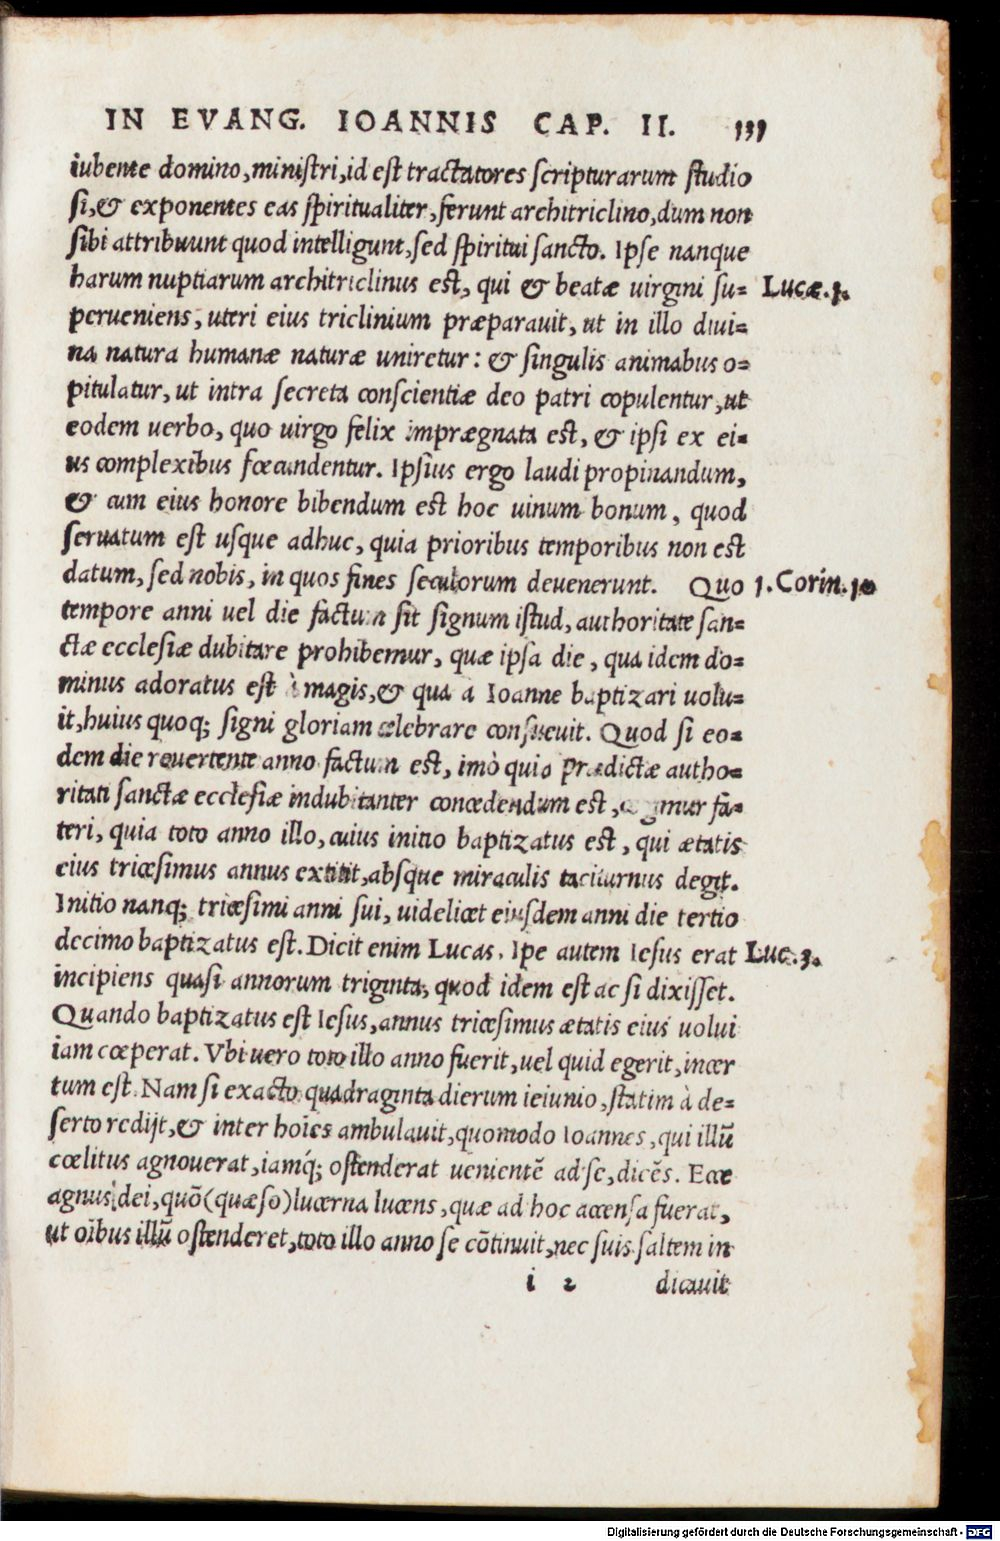 IN EVANG. IOANNIS CAP. II. 131
iubente domino, ministri, id est tractatores scripturarum studio
si, & exponentes eas spiritualiter, ferunt architriclino, dum non
sibi attribuunt quod intelligunt, sed spiritui sancto. Ipse nanque
harum nuptiarum architriclinus est, qui & beatæ virgini su= Lucæ.1.
perueniens, uteri eius triclinium præparauit, ut in illo diui=
na natura humanæ naturæ uniretur: & singulis animabus o=
pitulatur, ut intra secreta conscientiæ deo patri copulentur, ut
eodem uerbo, quo uirgo felix imprægnata est, & ipsi ex ei=
us complexibus fœcundentur. Ipsius ergo laudi propinandum,
& cum eius honore bibendum est hoc uinum bonum, quod
seruatum est usque adhuc, quia prioribus temporibus non est
datum, sed nobis, in quos fines seculorum deuenerunt. Quo 1. Corin. 10
tempore anni uel die factum sit signum istud, authoritate san=
ctæ ecclesiæ dubitare prohibemur, quæ ipsa die, qua idem do=
minus adoratus est à magis, & qua à Ioanne baptizari uolu=
it, huius quoq; signi gloriam celebrare consueuit. Quod si eo=
dem die reuertente anno factum est, imò quia prædictæ autho=
ritati sanctæ ecclesiæ indubitanter concedendum est, cogimur fa=
teri, quia toto anno illo, cuius initio baptizatus est, qui ætatis
eius tricesimus annus extitit, absque miraculis taciturnus degit.
Initio nanq; tricesimi anni sui, uidelicet eiusdem anni die tertio
decimo baptizatus est. Dicit enim Lucas. Ipe autem Iesus erat Luc.3.
incipiens quasi annorum triginta, quod idem est ac si dixisset.
Quando baptizatus est Iesus, annus tricesimus ætatis eius uolui
iam cœperat. Vbi uero toto illo anno fuerit, uel quid egerit, incer
tum est. Nam si exacto quadraginta dierum ieiunio, statim à de=
serto redijt, & inter hoies ambulauit, quomodo Ioannes, qui illū
cœlitus agnouerat, iamq́; ostenderat uenientē ad se, dicēs. Ecce
agnus dei, quō (quæso) lucerna lucens, quæ ad hoc accensa fuerat,
ut oībus illū ostenderet, toto illo anno se cōtinuit, nec suis saltem in
i 2 dicauit
Digitalisierung gefördert durch die Deutsche Forschungsgemeinschaft - DFG